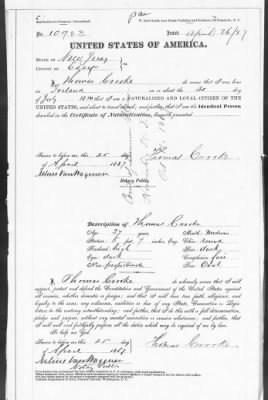 No. 10923 Issued April 26/87
UNITED STATES OF AMERICA.
STATE OF New Jersey
COUNTY OF Essex
I, Thomas Crooke do swear that I was born
in Ireland on or about the 30 day
of July that I am a NATURALIZED AND LOYAL CITIZEN OF THE
UNITED STATES, and about to travel abroad; and further, that I am the Identical Person
described in the Certificate of Naturalization, herewith presented
Sworn to before me this 25 day
of April 1887 Thomas Crooke
Notary Public.
Description of Thomas Crooke
Age: 37 years Mouth: Medium
Stature: 5 feet 7 inches Eng. Chin: round
Forehead: high Hair: dark
Eyes: dark Complexion: fair
Nose: proportionate Face: Oval
I, Thomas Crooke do solemnly swear that I will
support, protect and defend the Constitution and Government of the United States against
all enemies, whether domestic or foreign; and that I will bear true faith, allegiance and
loyalty to the same, any ordinance, resolution or law of any State, Convention or Legislature
to the contrary notwithstanding; and further, that I do this with a full determination,
pledge and purpose, without any mental reservation or evasion whatsoever; and further, that
I will well and faithfully perform all the duties which may be required of me by law.
So help me God
Sworn to before me this 25 day
of April 1887 Thomas Crooke
Notary Public